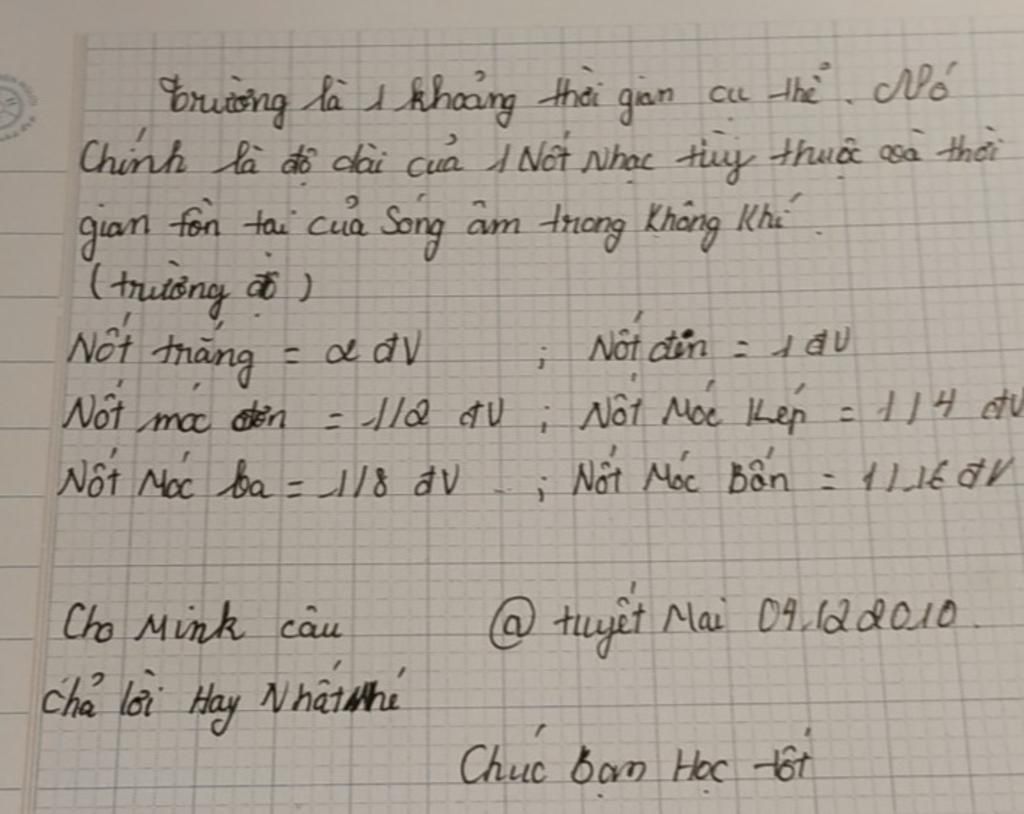 trường là 1 khoảng thời gian cụ thể. Nó
Chính là độ dài của 1 Nốt Nhạc tùy thuộc và thời
gian tồn tại của Sóng âm trong Không Khí.
(trường độ)
Nốt trắng = 2 đV ; Nốt đen = 1 đV
Nốt móc đơn = 1/2 đV ; Nốt Móc Kép = 1/4 đV
Nốt Móc ba = 1/8 đV ; Nốt Móc Bốn = 1/16 đV
Cho Mình câu @ tuyết Mai 09.122010.
chả lời Hay Nhất nhé
Chúc bạn Học tốt